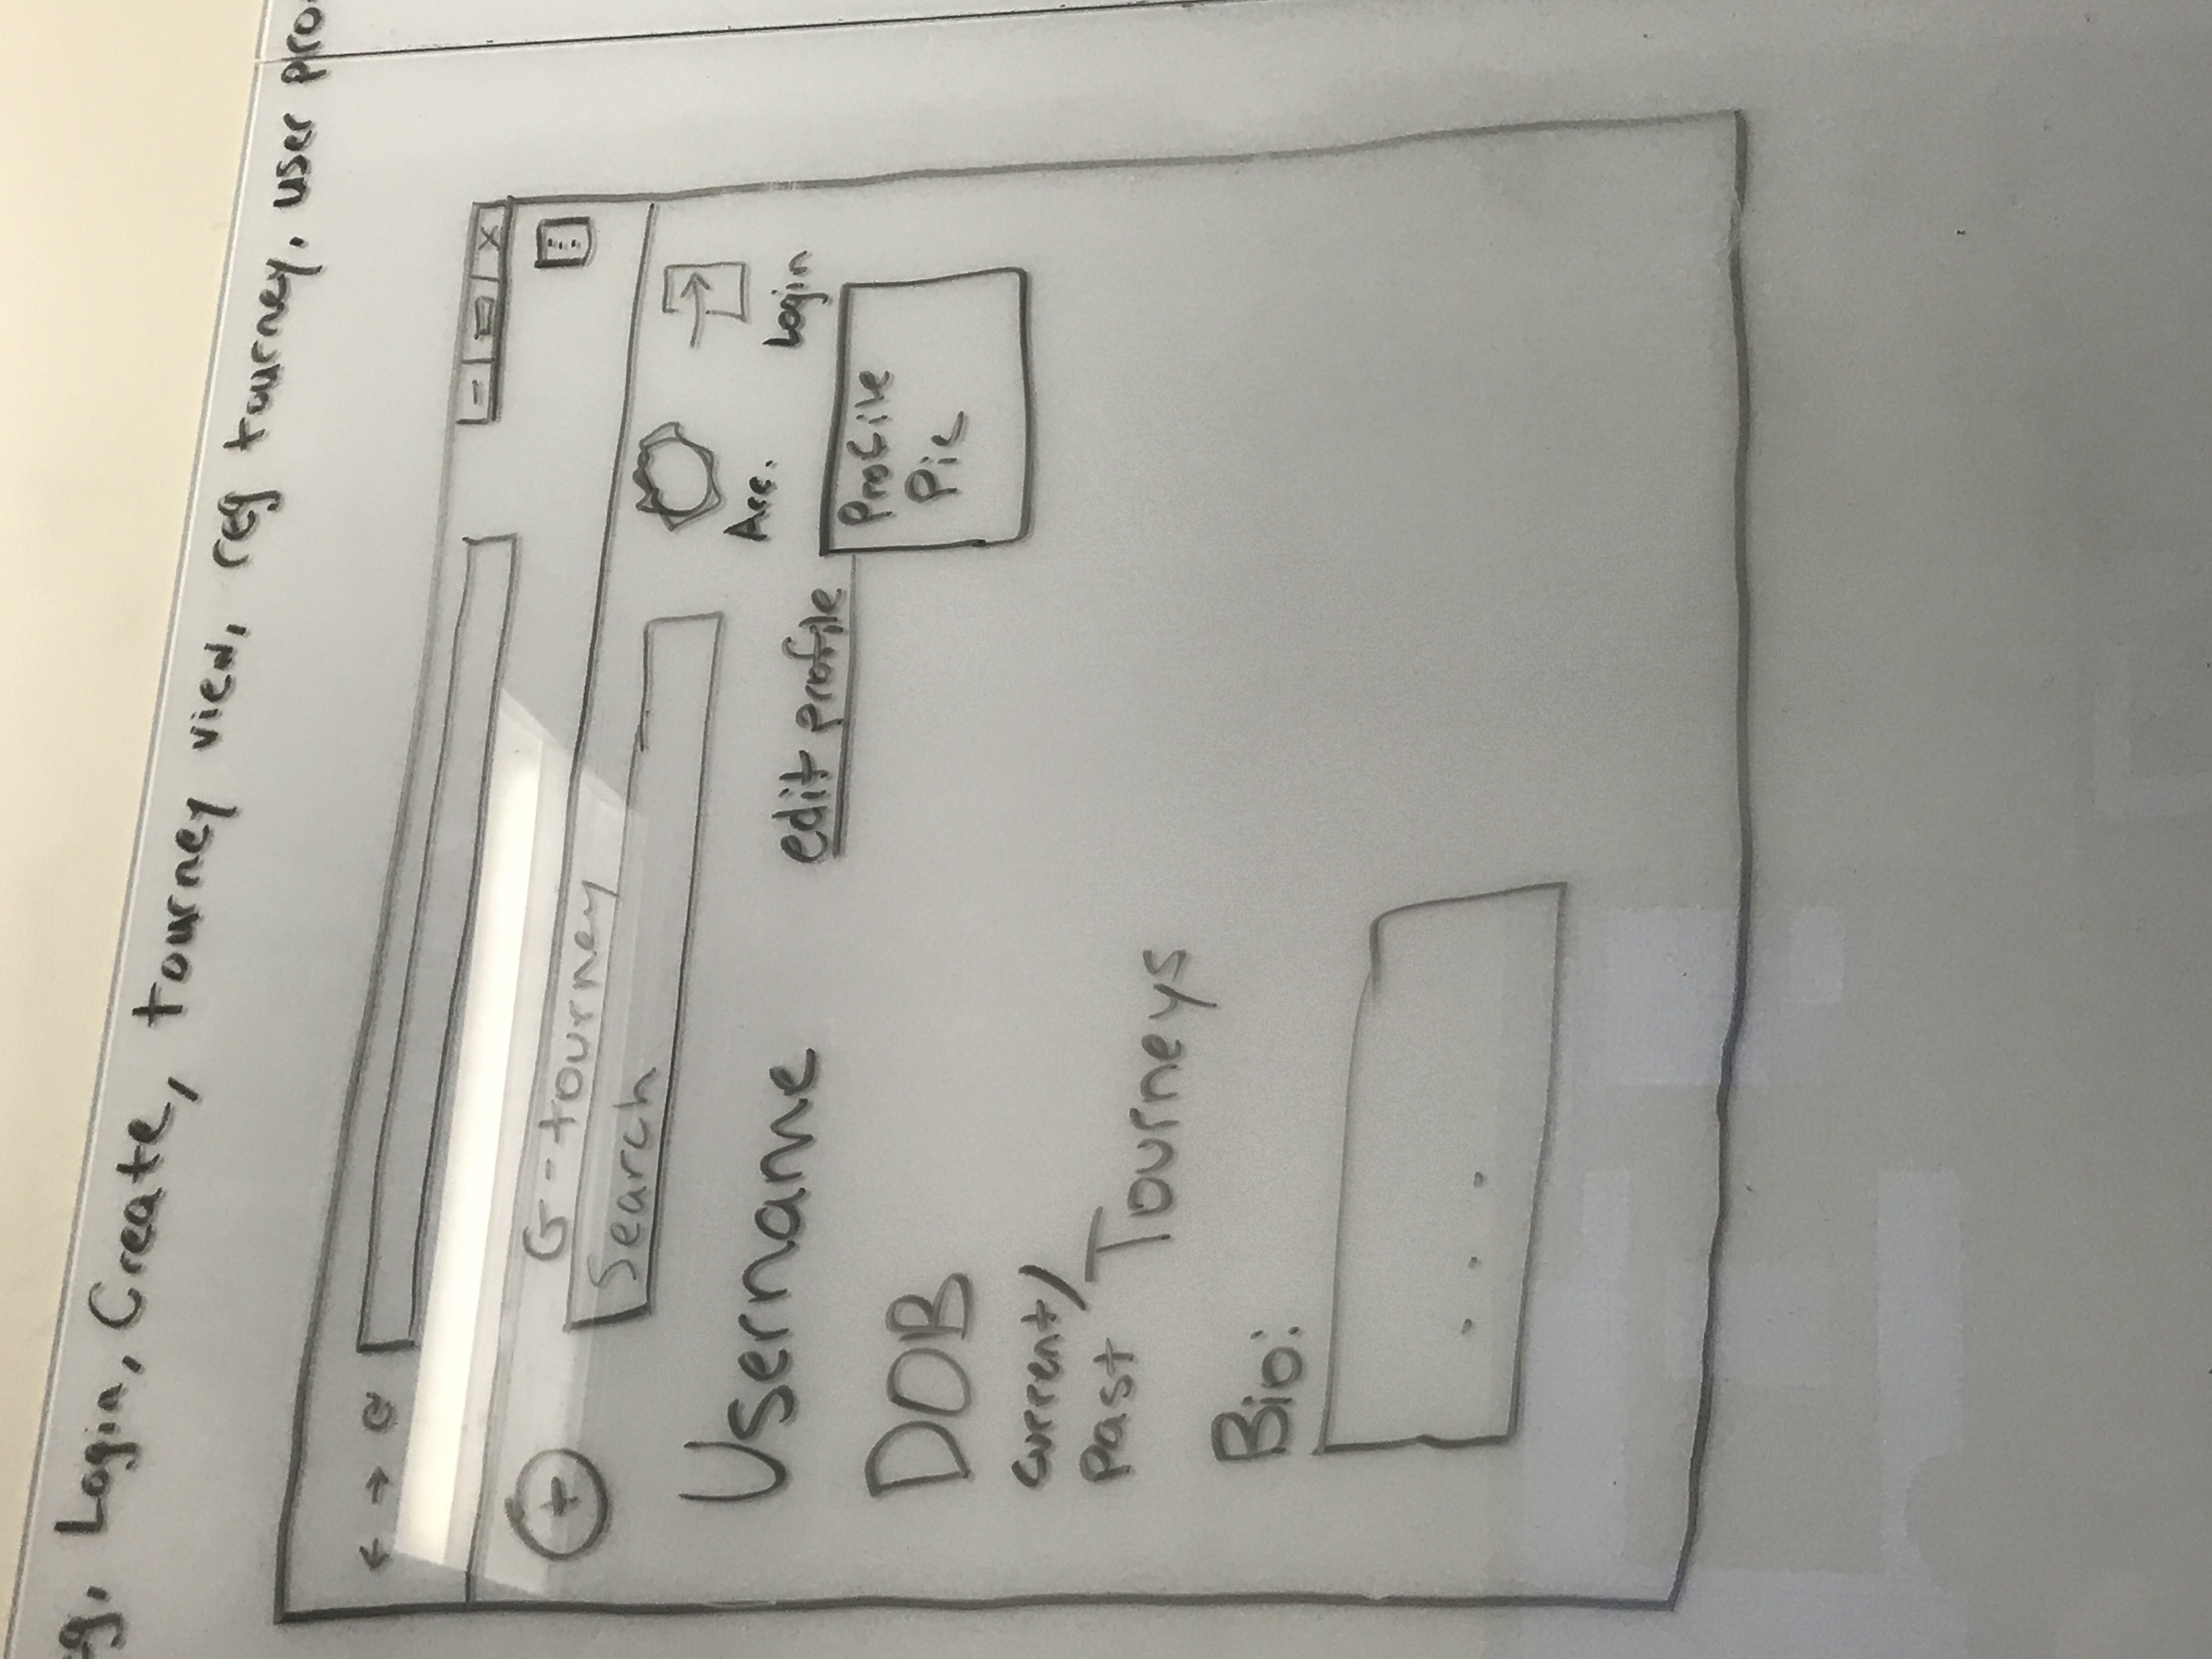 Login, Create, tourney view, reg tourney, user pro
G-tourney
Search
Acc.
Login
Username
edit profile
Profile
Pic
DOB
current/
past Tourneys
Bio:
...